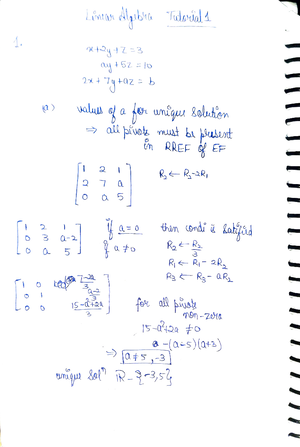 Linear Algebra Tutorial 1
1.
x+2y+z=3
ay+5z=10
2x+7y+az = b
a) values of a for unique solution
⇒ all pivots must be present
in RREF of EF
[1 2 1
2 7 a
0 a 5]
R2 ← R2-2R1
[1 2 1
0 3 a-2
0 a 5]
if a=0 then condi is satisfied
if a≠0
R2 ← R2/3
R1 ← R1 - 2R2
R3 ← R3 - aR2
[1 0 (7-2a)/3
0 1 (a-2)/3
0 0 (15-a²+2a)/3]
for all pivots
non-zero
15-a²+2a ≠0
-(a-5)(a+3)
⇒ a≠5,-3
unique Solⁿ R - {-3,5}